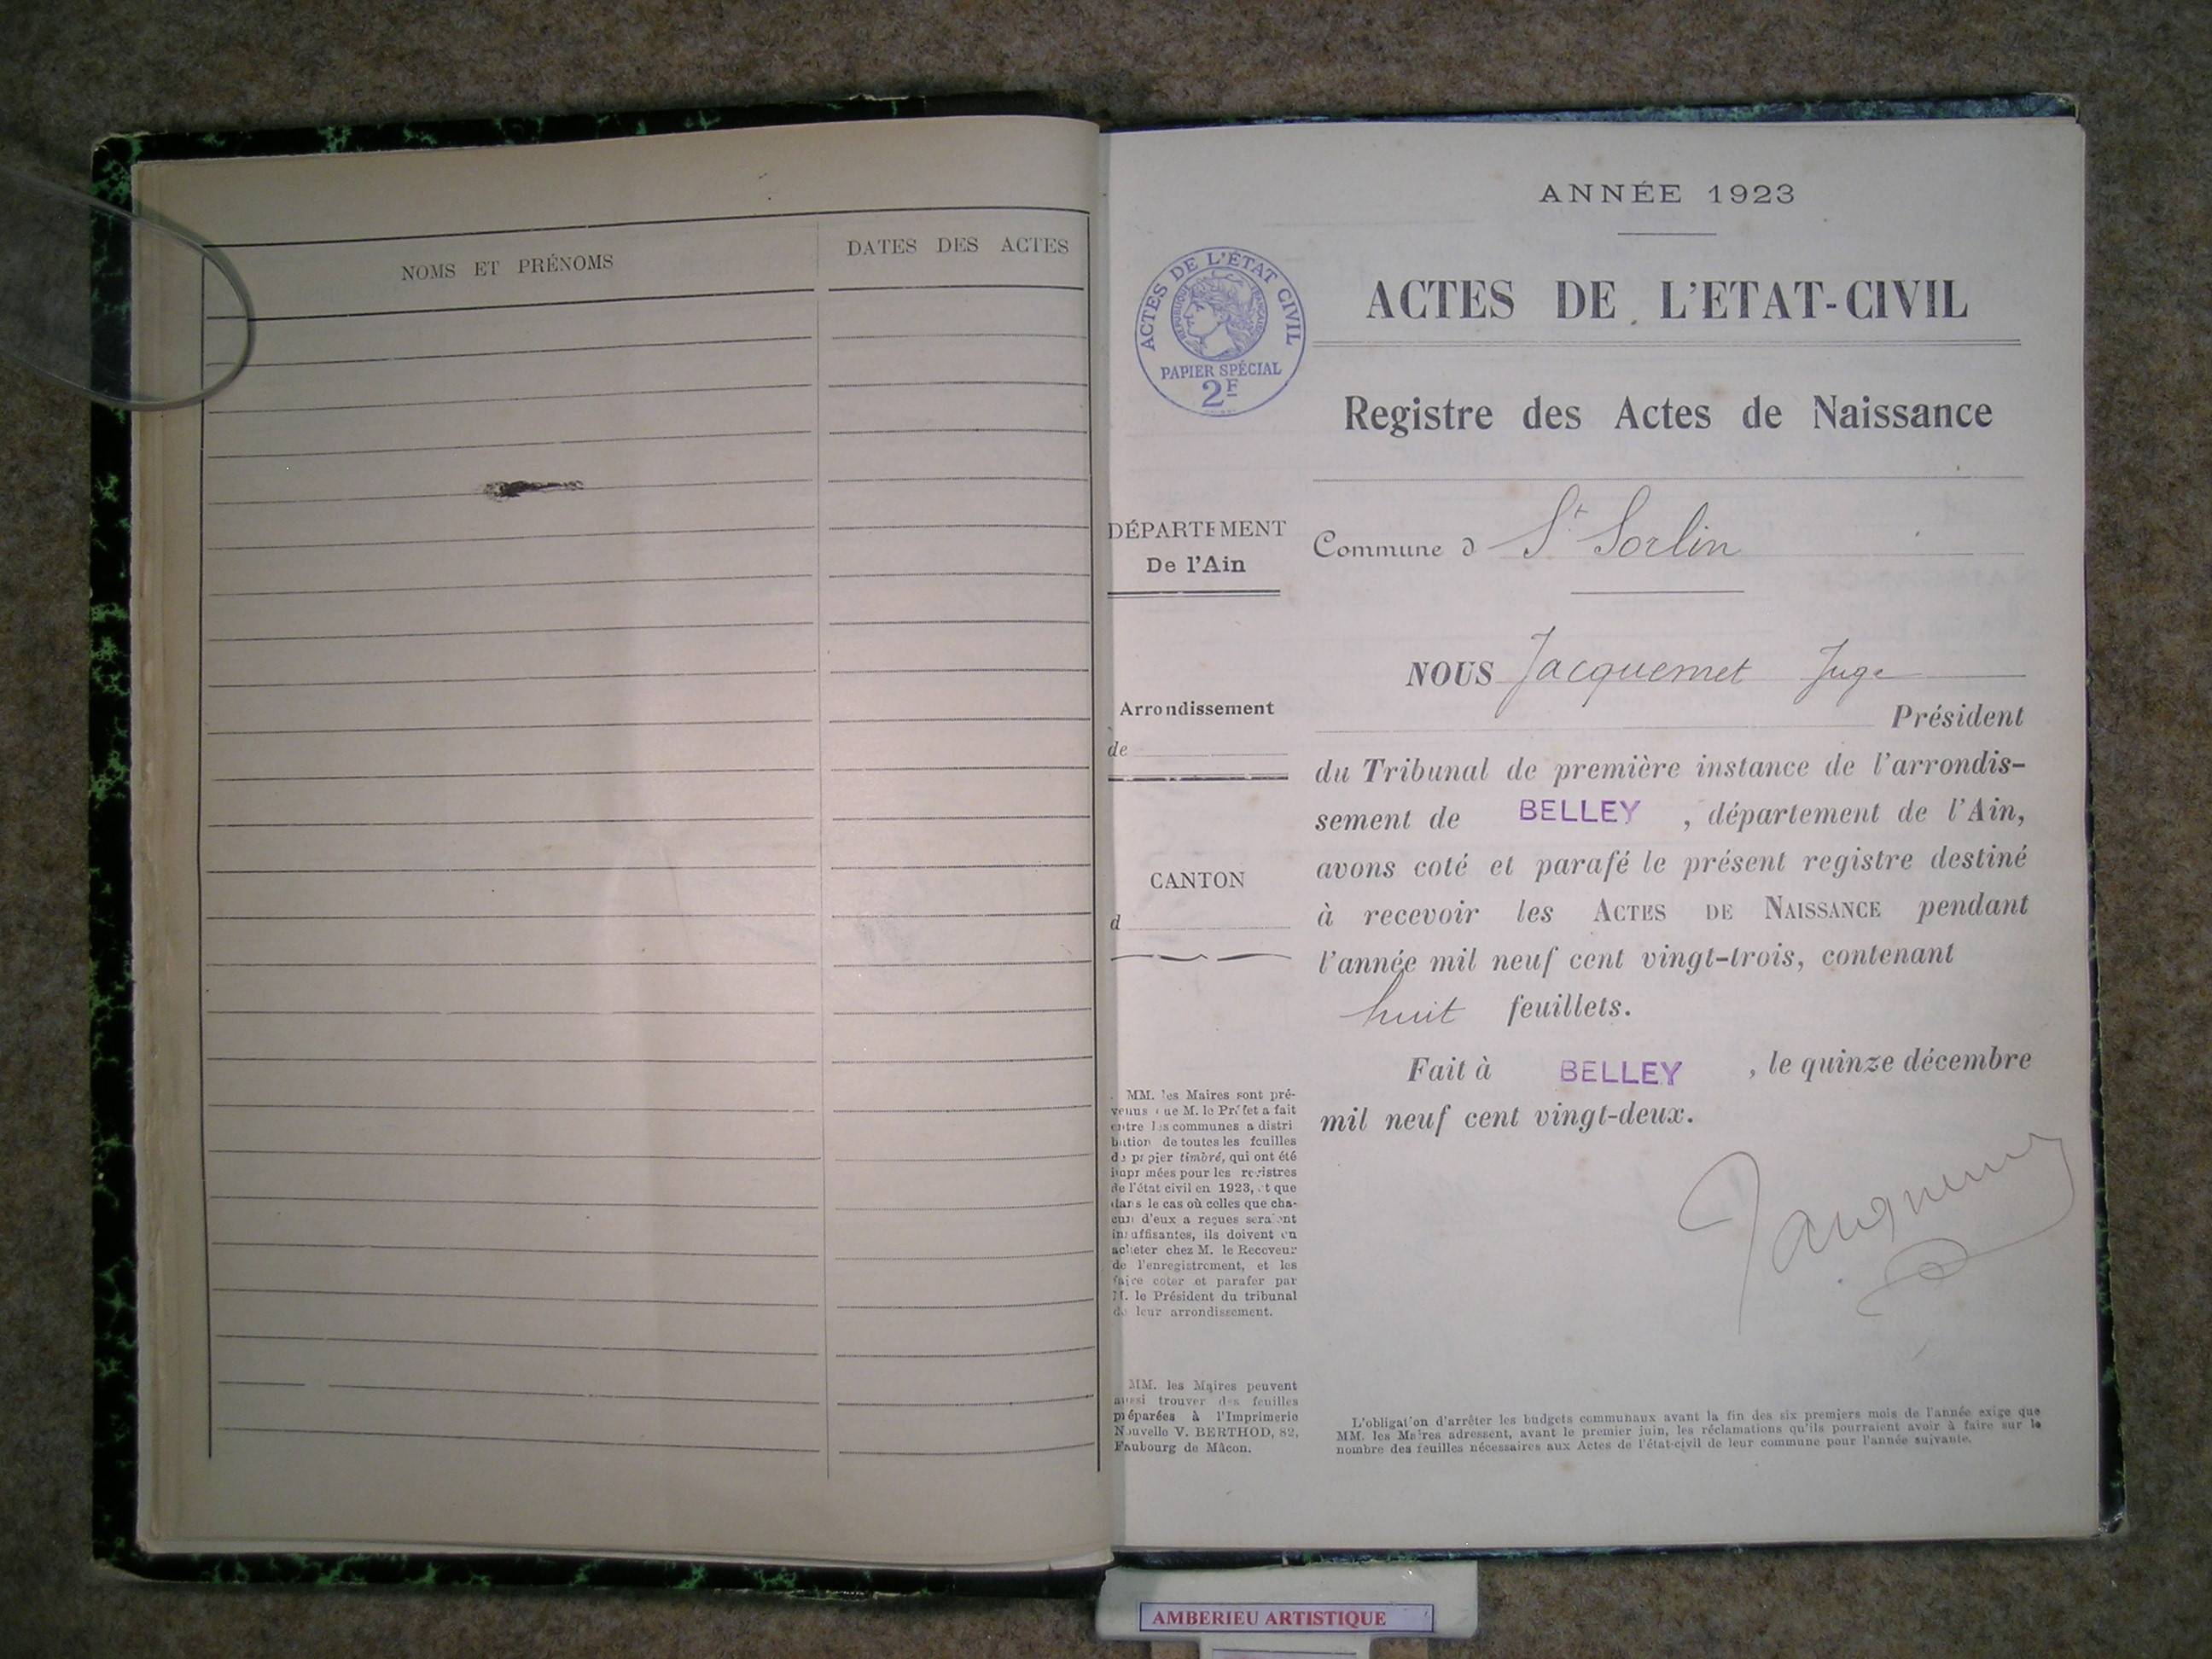 NOMS ET PRÉNOMS
DATES DES ACTES
ANNÉE 1923
ACTES DE L'ÉTAT CIVIL
RÉPUBLIQUE FRANÇAISE
PAPIER SPÉCIAL
2F
ACTES DE L'ETAT-CIVIL
Registre des Actes de Naissance
DÉPARTEMENT
De l'Ain
Commune d St Sorlin
Arrondissement
de
CANTON
d
NOUS Jacquemet Juge
Président
du Tribunal de première instance de l'arrondis-
sement de BELLEY , département de l'Ain,
avons coté et parafé le présent registre destiné
à recevoir les ACTES DE NAISSANCE pendant
l'année mil neuf cent vingt-trois, contenant
huit feuillets.
Fait à BELLEY , le quinze décembre
mil neuf cent vingt-deux.
MM. les Maires sont pré-
venus que M. le Préfet a fait
entre les communes a distri
bution de toutes les feuilles
de papier timbré, qui ont été
imprimées pour les registres
de l'état civil en 1923, et que
dans le cas où celles que cha-
cun d'eux a reçues seraient
insuffisantes, ils doivent en
acheter chez M. le Receveur
de l'enregistrement, et les
faire coter et parafer par
M. le Président du tribunal
de leur arrondissement.
MM. les Maires peuvent
aussi trouver des feuilles
préparées à l'Imprimerie
Nouvelle V. BERTHOD, 82,
Faubourg de Mâcon.
L'obligation d'arrêter les budgets communaux avant la fin des six premiers mois de l'année exige que
MM. les Maires adressent, avant le premier juin, les réclamations qu'ils pourraient avoir à faire sur le
nombre des feuilles nécessaires aux Actes de l'état-civil de leur commune pour l'année suivante.
AMBERIEU ARTISTIQUE